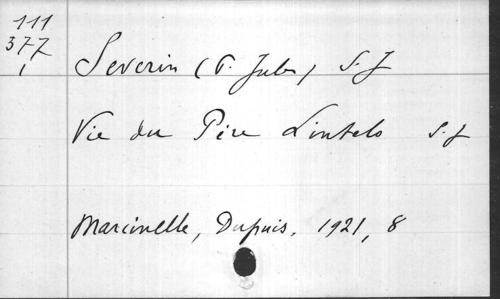 111
377
1
Severin (P. Jules) S. J
Vie du Père Lintelo S. J
Marcinelle, Dupuis. 1921, 8